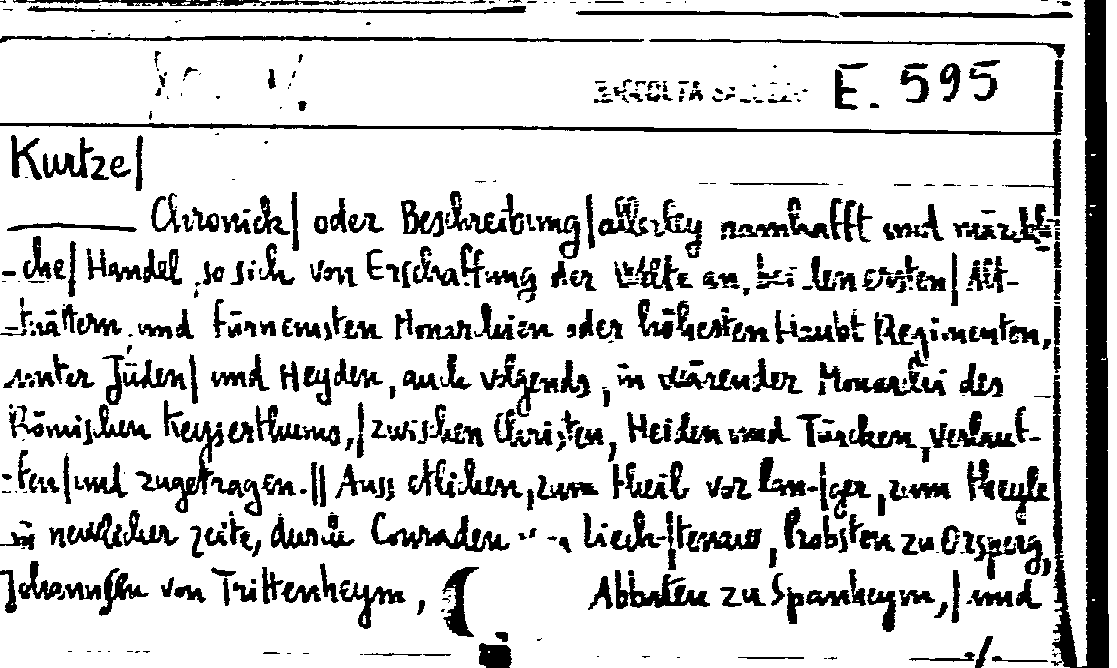 E. 595
Kurtze|
Chronick| oder Beschreibung| allerley namhafft und
-che| Handel, so sich von Erschaffung der Welte an, bei den ersten| Alt-
-trättern, und fürnemsten Monarchien oder höhesten Haubt Regimenten,
unter Jüden| und Heyden, auch volgends, in wärender Monarchi des
Römischen Keyserthums,| zwischen Christen, Heiden und Türcken, verlauf-
-fen| und zugetragen.|| Auss etlichen, zum theil vor lan-|ger, zum theyle
in neuwlicher zeite, durch Conraden Liech-|tenaw, Probsten zu Orsperg,
Johannsen von Trittenheym, Abbaten zu Spanheym,| und
./.